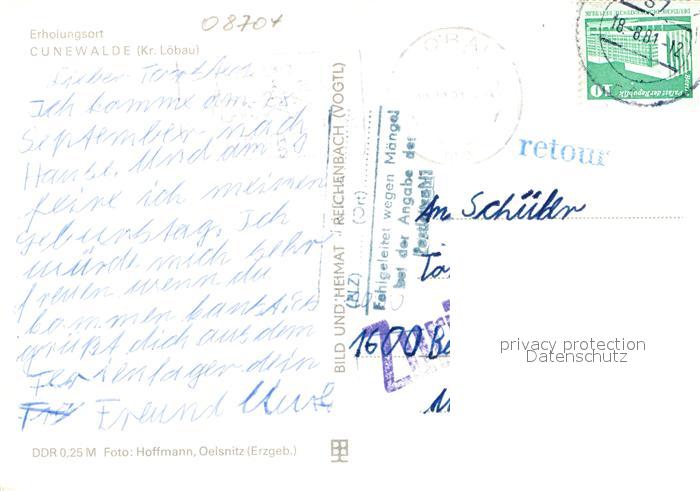 08701
Erholungsort
CUNEWALDE (Kr. Löbau)
Lieber
Ich komme am
September nach
Hause. Und am 30
feire ich meinen
Geburtstag. Ich
würde mich sehr
freuen wenn du
kommen kanst. Es
grüßt dich aus dem
Ferienlager dein
Freund Uwe
DDR 0,25 M Foto: Hoffmann, Oelsnitz (Erzgeb.)
BILD UND HEIMAT REICHENBACH (VOGTL)
Fehlgeleitet wegen Mängel
bei der Angabe der
Postleitzahl
(PLZ) (Ort)
18.-8.81-12
10
Palast der Republik
Berlin
DEUTSCHE DEMOKRATISCHE REPUBLIK
retour
An Schüler
1600
privacy protection
Datenschutz